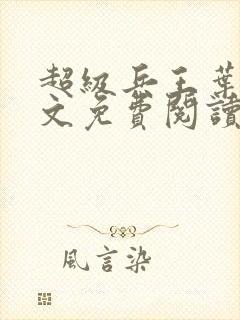 超級兵王葉
文免費閱讀
風言染